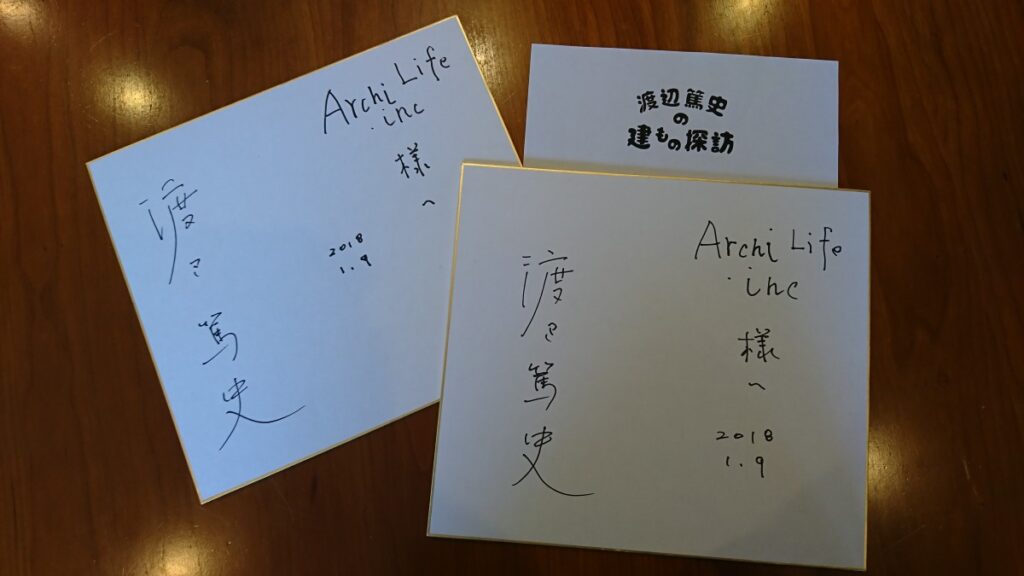 Archi Life
.inc
様
へ
2018
1.9
渡辺篤史
渡辺篤史
の
建もの探訪
Archi Life
.inc
様
へ
2018
1.9
渡辺篤史